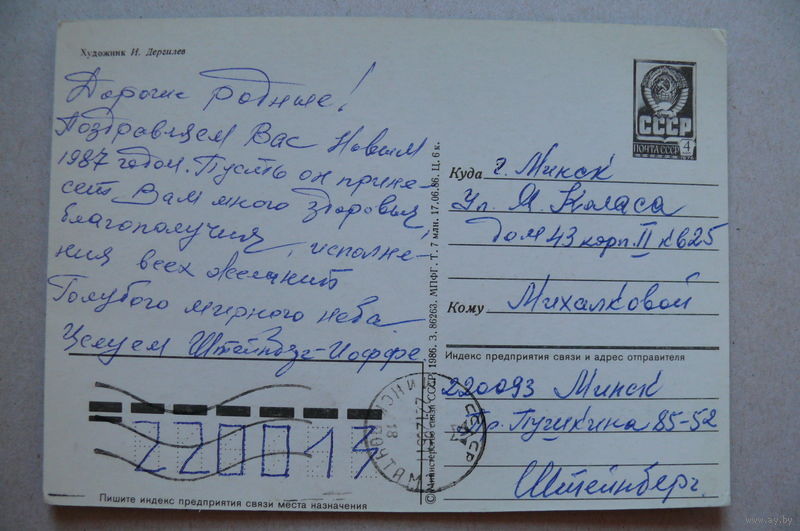 Художник И. Дергилев
Дорогие родные!
Поздравляем Вас Новым
1987 годом. Пусть он прине-
сет Вам много здоровья,
благополучия, исполне-
ния всех желаний
Голубого мирного неба
Целуем Штейнберг-Иоффе
220013
Пишите индекс предприятия связи места назначения
© Министерство связи СССР, 1986. З. 86263. МПФГ. Т. 7 млн. 17.06.86. Ц. 6 к.
СССР
ПОЧТА СССР 4
Куда г. Минск
Ул. Я. Коласа
дом 43 корп. II кв 25
Кому Михалковой
Индекс предприятия связи и адрес отправителя
220093 Минск
Пр. Пушкина 85-52
Штейнберг.
МИНСК
ПОЧТАМТ
СССР
18
www.ay.by